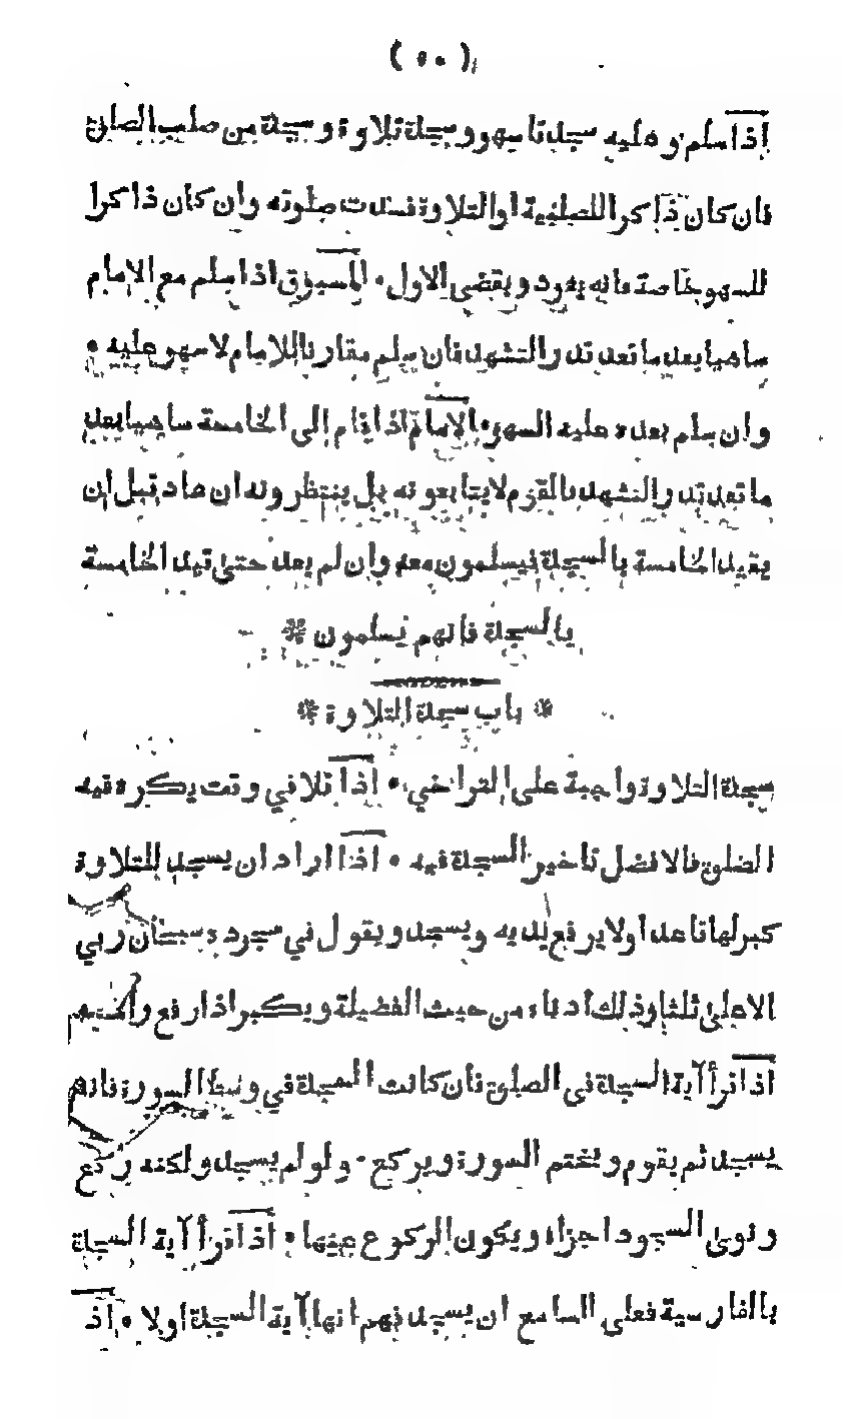 ( ٥٠ )
اذا سلم وعليه سجدتا سهو وسجدة تلاوة وسجدة من صلب الصلوة
فان كان ذاكرا للصلبية او التلاوة فسدت صلوته وان كان ذاكرا
للسهو خاصة فانه يعود ويقضي الاول • المسبوق اذا سلم مع الامام
ساهيا بعد ما قعد قدر التشهد فان سلم مقارنا للامام لا سهو عليه •
وان سلم بعده عليه السهو • الامام اذا قام الى الخامسة ساهيا بعد
ما قعد قدر التشهد فالقوم لا يتابعونه بل ينتظرونه ان عاد قبل ان
يقيد الخامسة بالسجدة فيسلمون معه وان لم يعد حتى قيد الخامسة
بالسجدة فانهم يسلمون *
* باب سجدة التلاوة *
سجدة التلاوة واجبة على التراخي • اذا تلا في وقت يكره فيه
الصلوة فالافضل تاخير السجدة فيه • اذا اراد ان يسجد للتلاوة
كبر لها قاعدا ولا يرفع يديه ويسجد ويقول في سجوده سبحان ربي
الاعلى ثلثا وذلك ادناه من حيث الفضيلة ويكبر اذا رفع رأسه
اذا قرأ آية السجدة في الصلوة فان كانت السجدة في وسط السورة فانه
يسجد ثم يقوم ويختم السورة ويركع • ولو لم يسجد ولكنه ركع
ونوى السجود اجزاه ويكون الركوع عنها • اذا قرأ آية السجدة
بالفارسية فعلى السامع ان يسجد فهم انها آية السجدة اولا • اذ